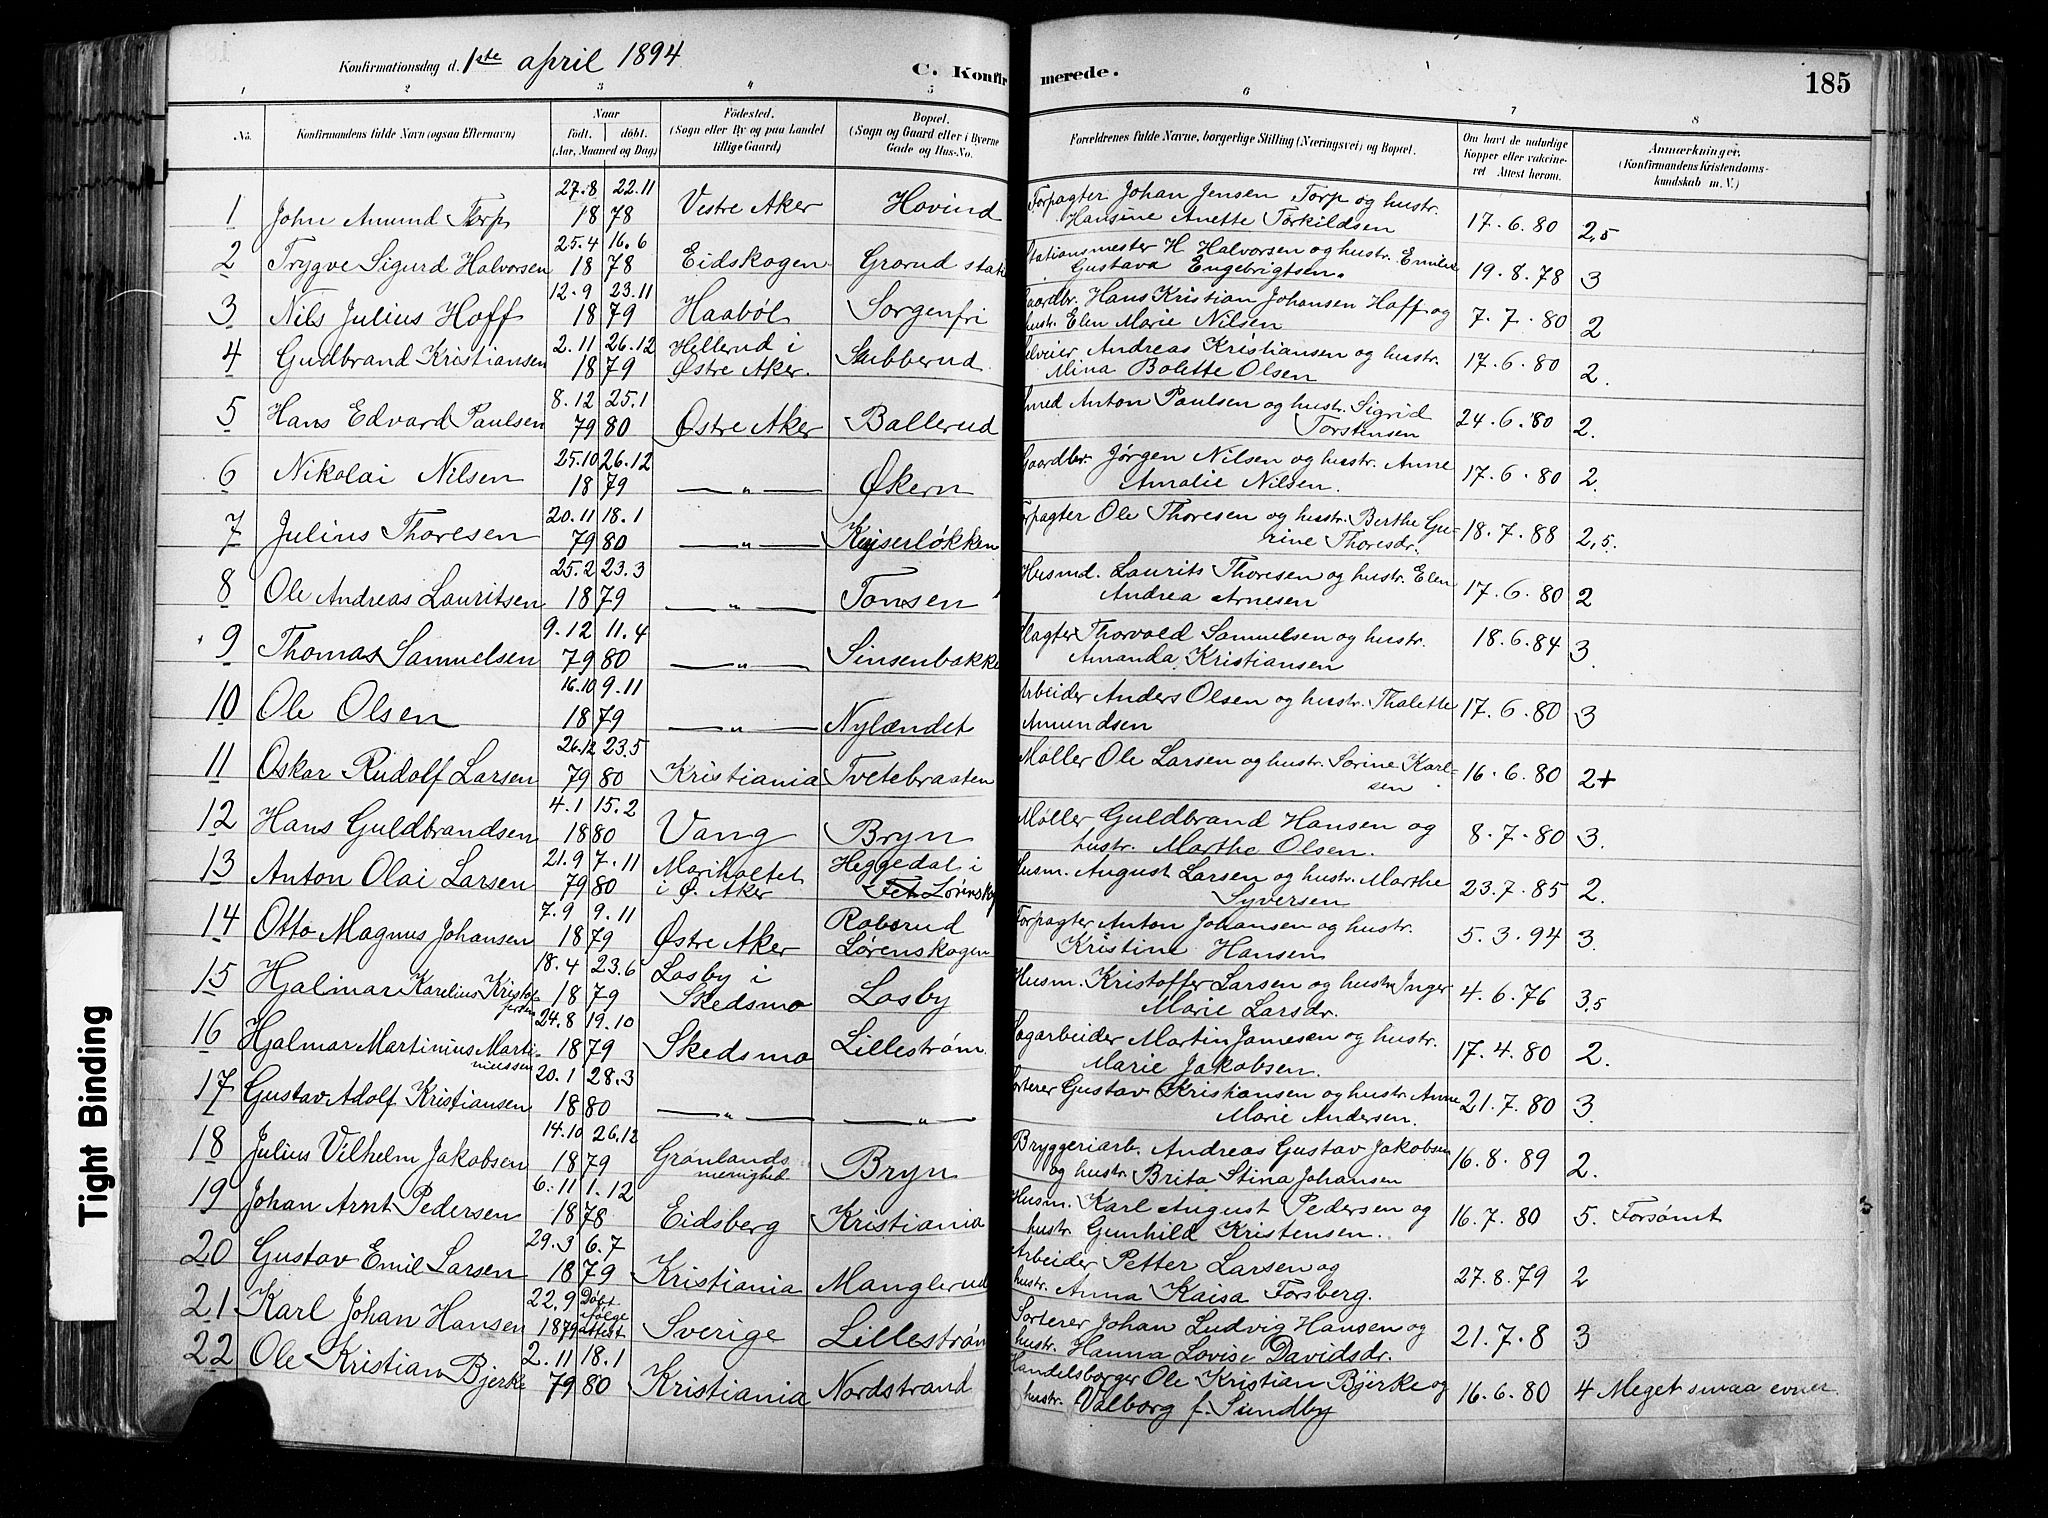 Konfirmationsdag d. 1ste april 1894
C. Konfirmerede.
185
1 2 3 4 5 6 7 8
No. Konfirmandens fulde Navn (ogsaa Efternavn) Naar født. døbt. (Aar, Maaned og Dag) Fødested. (Sogn eller By og paa Landet tillige Gaard) Bopæl. (Sogn og Gaard eller i Byerne Gade og Hus-No. Forældrenes fulde Navne, borgerlige Stilling (Næringsvei) og Bopæl. Om havt de naturlige Kopper eller vaccineret Attest herom. Anmærkninger. (Konfirmandens Kristendomskundskab m. V.)
1 John Amund Torp 27.8 22.11 1878 Vestre Aker Hovind Forpagter Johan Jensen Torp og hustr. Hansine Anette Torkildsen 17.6.80 2,5
2 Trygve Sigurd Halvorsen 25.4 16.6 1878 Eidskogen Grorud stat Stationsmester H. Halvorsen og hustr. Emilie Gustava Engebrigtsen. 19.8.78 3
3 Nils Julius Hoff 12.9 23.11 1879 Haabøl Sorgenfri Gaardbr. Hans Kristian Johansen Hoff og hustr. Elen Marie Nilsen 7.7.80 2
4 Gudbrand Kristiansen 2.11 26.12 1879 Hellerud i Østre Aker. Skubberud Selveier Andreas Kristiansen og hustr. Mina Bolette Olsen 17.6.80 2.
5 Hans Edvard Paulsen 8.12 25.1 79 80 Østre Aker Ballerud Smed Anton Paulsen og hustr. Sigrid Torstensen 24.6.80 2.
6 Nikolai Nilsen 25.10 26.12 1879 — " — Økern Gaardbr. Jørgen Nilsen og hustr. Anne Amalie Nilsen. 17.6.80 2.
7 Julius Thoresen 20.11 18.1 79 80 — " — Keiserløkken Forpagter Ole Thoresen og hustr. Berthe Gurine Thoresdr. 18.7.88 2,5.
8 Ole Andreas Lauritsen 25.2 23.3 1879 — " — Tonsen Husmd. Laurits Thoresen og hustr. Elen Andrea Arnesen 17.6.80 2
9 Thomas Samuelsen 9.12 11.4 79 80 — " — Sinsenbakke Slagter Thorvald Samuelsen og hustr. Amanda Kristiansen 18.6.84 3.
10 Ole Olsen 16.10 9.11 1879 — " — Nylændet Arbeider Anders Olsen og hustr. Thalette Amundsen 17.6.80 3
11 Oskar Rudolf Larsen 26.12 23.5 79 80 Kristiania Tvetebraaten Møller Ole Larsen og hustr. Sørine Karlsen 16.6.80 2+
12 Hans Guldbrandsen 4.1 15.2 1880 Vang Bryn Møller Guldbrand Hansen og hustr. Marthe Olsen. 8.7.80 3.
13 Anton Olai Larsen 21.9 7.11 79 80 Mariholtet i Ø. Aker Heggedal i Fet Lørenskog Husm. August Larsen og hustr. Marthe Syversen 23.7.85 2.
14 Otto Magnus Johansen 7.9 9.11 1879 Østre Aker Robsrud Lørenskogen Forpagter Anton Johansen og hustr. Kristine Hansen 5.3.94 3.
15 Hjalmar Karelius Kristofersen 18.4 23.6 1879 Losby i Skedsmo Losby Husm. Kristoffer Larsen og hustr. Inger Marie Larsdr. 4.6.76 3,5
16 Hjalmar Martinius Martiniussen 24.8 19.10 1879 Skedsmo Lillestrøm Sagarbeider Martin Jamesen og hustr. Marie Jakobsen. 17.4.80 2.
17 Gustav Adolf Kristiansen 20.1 28.3 1880 — " — — " — Sorterer Gustav Kristiansen og hustr. Anne Marie Andersen. 21.7.80 3.
18 Julius Vilhelm Jakobsen 14.10 26.12 1879 Grønlands menighed Bryn Bryggeriarb. Andreas Gustav Jakobsen og hustr. Brita Stina Johansen 16.8.89 2.
19 Johan Arnt Pedersen 6.11 1.12 1878 Eidsberg Kristiania Husm. Karl August Pedersen og hustr. Gunhild Kristensen. 16.7.80 5. Forsømt
20 Gustav Emil Larsen 29.3 6.7 1879 Kristiania Manglerud Arbeider Petter Larsen og hustr. Anna Kaisa Forsberg. 27.8.79 2
21 Karl Johan Hansen 22.9 1879 Døbt ifølge attest Sverige Lillestrøm Sorterer Johan Ludvig Hansen og hustr. Hanna Lovise Davidsdr. 21.7.8 3
22 Ole Kristian Bjerke 2.11 18.1 79 80 Kristiania Nordstrand Handelsborger Ole Kristian Bjerke og hustr. Valborg f. Sundby 16.6.80 4 Meget smaa evner
Tight Binding